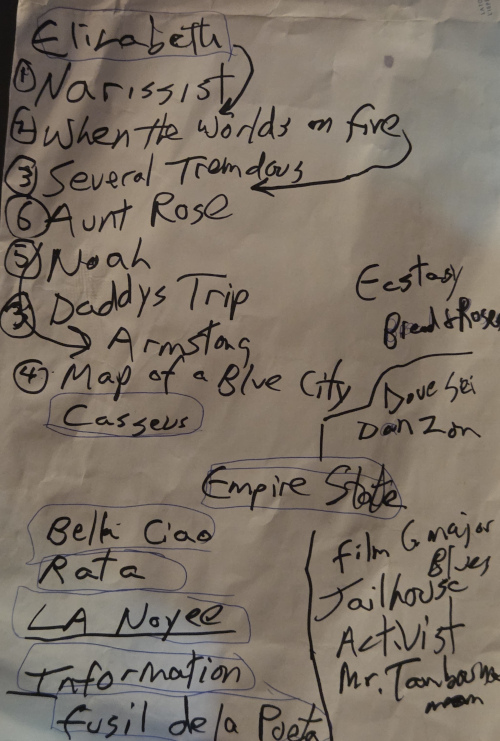 Elizabeth
① Narissist
② When the Worlds on fire
③ Several Tremdous
⑥ Aunt Rose
⑤ Noah
③ Daddys Trip
Armstong
④ Map of a Blue City
Casseus
Ecstasy
Bread & Roses
Dove Sei
Dan Zon
Empire State
Bella Ciao
Rata
LA Noyee
Information
Fusil de la Poeta
Film G major
Blues
Jailhouse
Activist
Mr. Tambourine